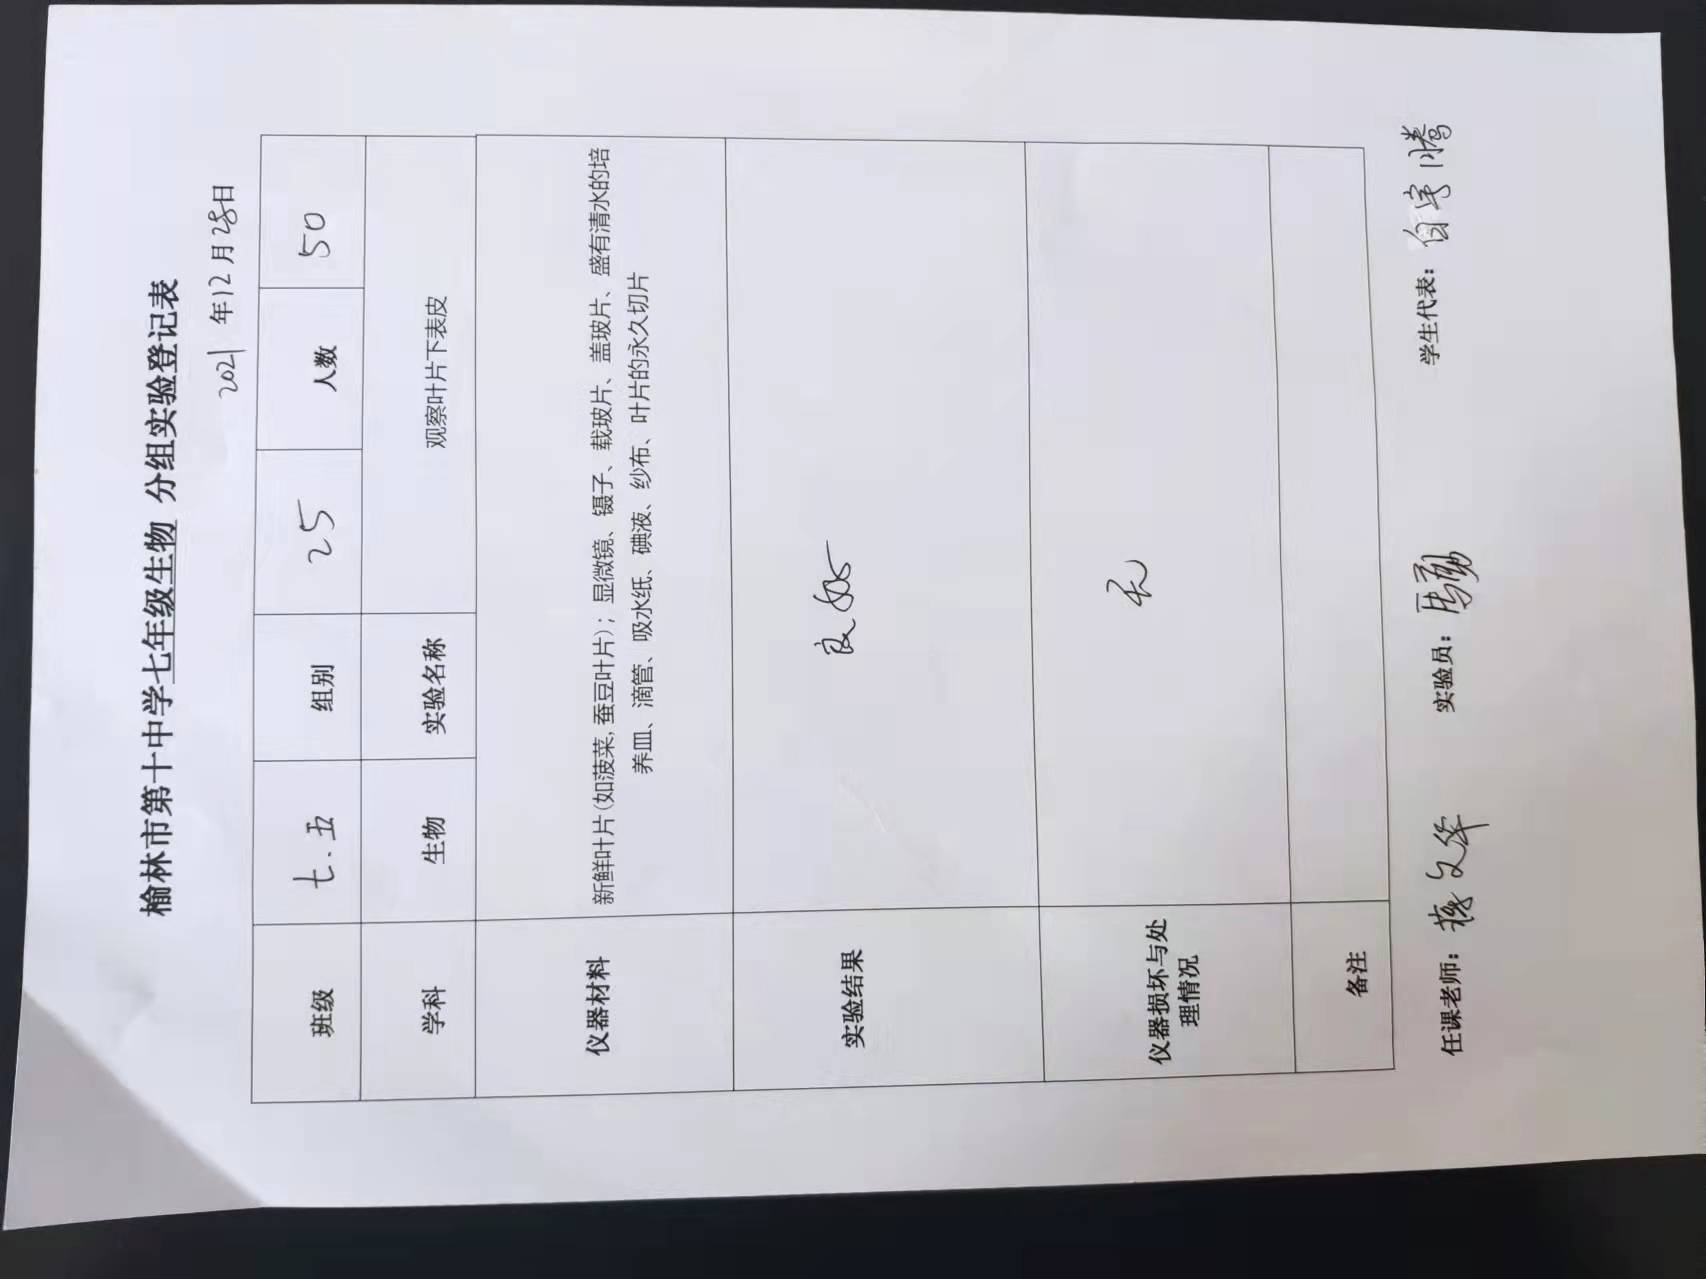 榆林市第十中学七年级生物 分组实验登记表
2021 年12月28日
班级 七.五 组别 25 人数 50
学科 生物 实验名称 观察叶片下表皮
仪器材料 新鲜叶片(如菠菜,蚕豆叶片);显微镜、镊子、载玻片、盖玻片、盛有清水的培
养皿、滴管、吸水纸、碘液、纱布、叶片的永久切片
实验结果 良好
仪器损坏与处
理情况 无
备注
任课老师: 文华 实验员: 学生代表: 白宇腾